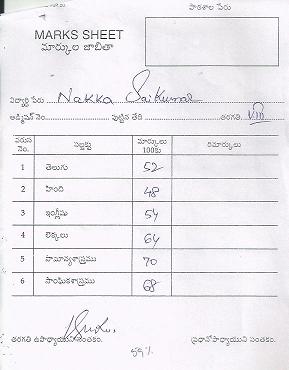 పాఠశాల పేరు
MARKS SHEET
మార్కుల జాబితా
విద్యార్థి పేరు Nakka Saikumar
అడ్మిషన్ నెం. పుట్టిన తేది తరగతి VIII
వరుస నెం. సబ్జెక్టు మార్కులు 100కు రిమార్కులు
1 తెలుగు 52
2 హింది 48
3 ఇంగ్లీషు 54
4 లెక్కలు 64
5 సామాన్యశాస్త్రము 70
6 సాంఘికశాస్త్రము 68
తరగతి ఉపాధ్యాయుని సంతకం. ప్రధానోపాధ్యాయుని సంతకం.
59%